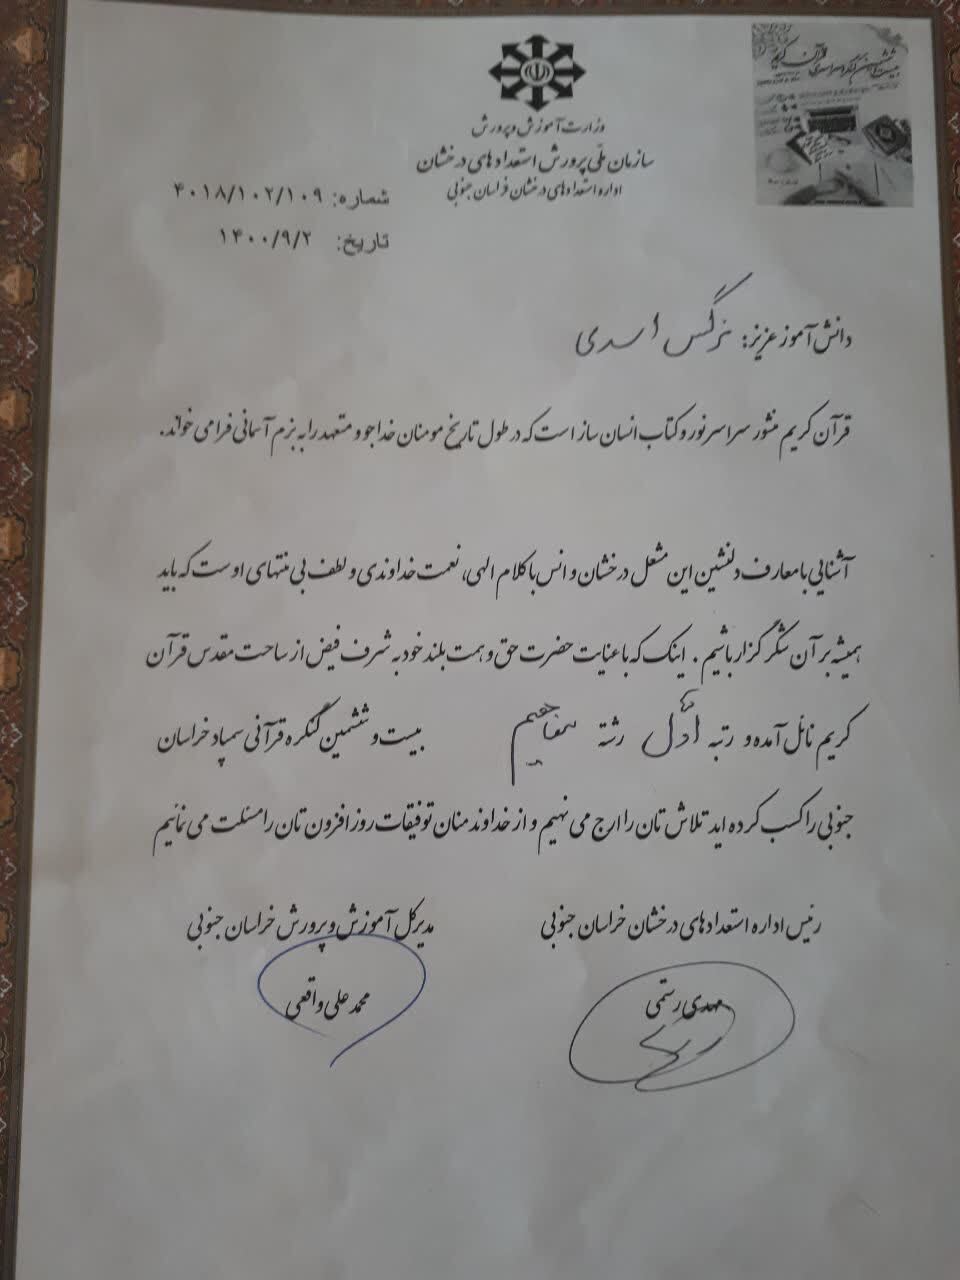 بیست و ششمین کنگره سراسری قرآن کریم
وزارت آموزش و پرورش
سازمان ملّی پرورش استعدادهای درخشان
اداره استعدادهای درخشان خراسان جنوبی
شماره: ۴۰۱۸/۱۰۲/۱۰۹
تاریخ: ۱۴۰۰/۹/۲
دانش آموز عزیز: نرگس اسدی
قرآن کریم منشور سراسر نور و کتاب انسان ساز است که در طول تاریخ مومنان خداجو و متعهد را به بزم آسمانی فرا می خواند.
آشنایی با معارف دلنشین این مشعل درخشان و انس با کلام الهی، نعمت خداوندی و لطف بی منتهای اوست که باید
همیشه بر آن شکرگزار باشیم. اینک که با عنایت حضرت حق و همت بلند خود به شرف فیض از ساحت مقدس قرآن
کریم نائل آمده و رتبه اوّل رشته مفاهیم بیست و ششمین کنگره قرآنی سمپاد خراسان
جنوبی را کسب کرده اید تلاش تان را ارج می نهیم و از خداوند منان توفیقات روز افزون تان را مسئلت می نمائیم
رئیس اداره استعدادهای درخشان خراسان جنوبی
مهدی رستمی
مدیرکل آموزش و پرورش خراسان جنوبی
محمد علی واقعی